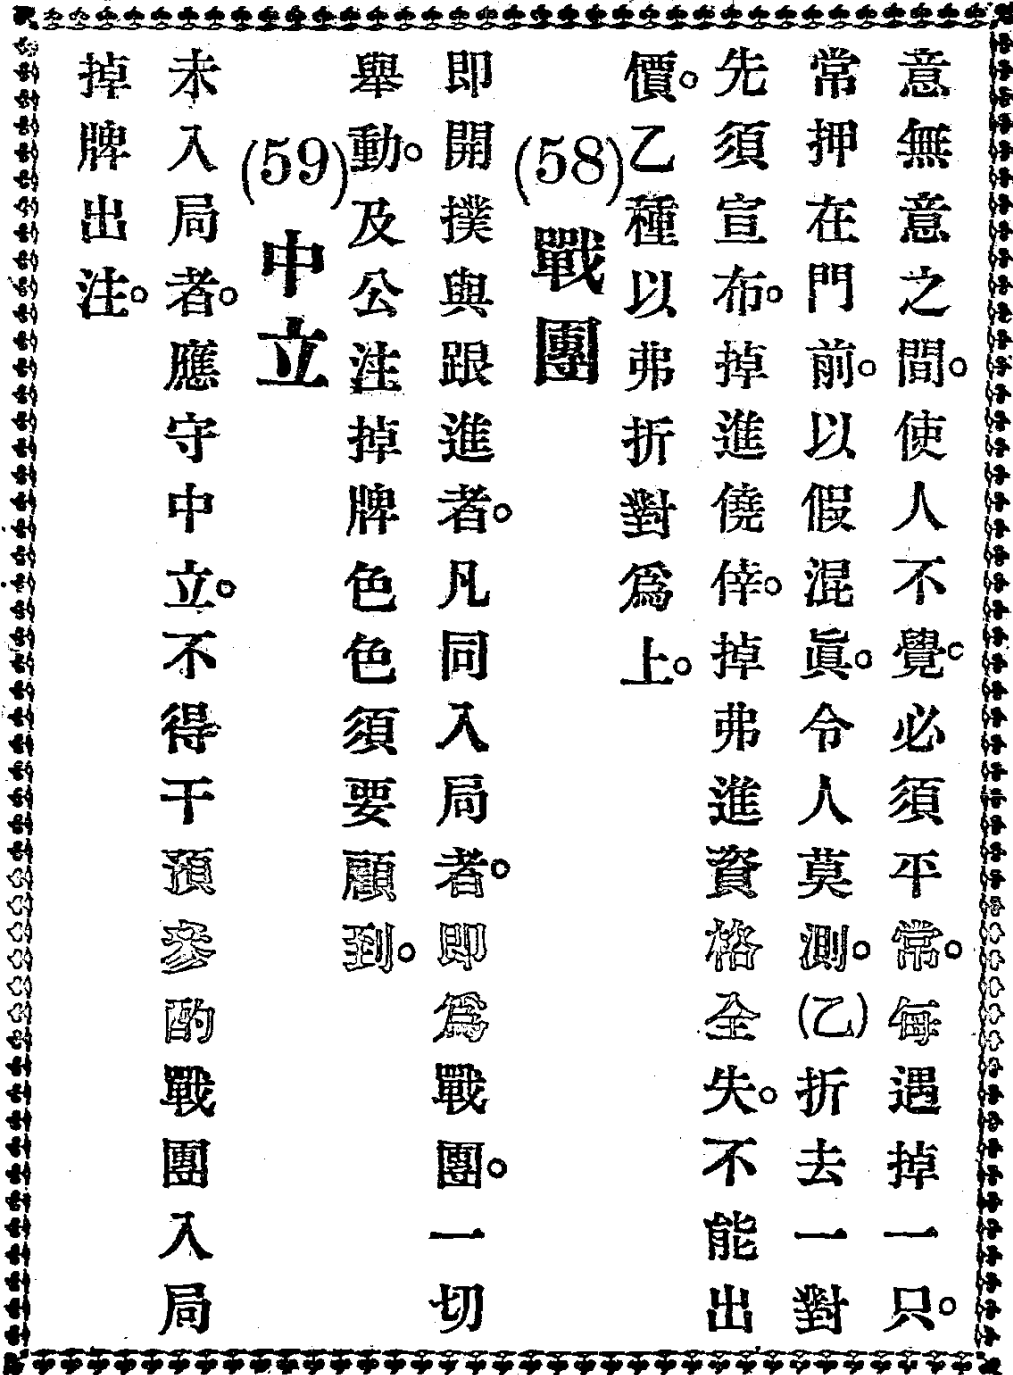 意無意之間。使人不覺。必須平常。每遇掉一只。
常押在門前。以假混眞。令人莫測。(乙)折去一對
先須宣布。掉進僥倖。掉弗進資格全失。不能出
價。乙種以弗折對爲上。
(58)戰團
即開撲與跟進者。凡同入局者。即爲戰團。一切
舉動。及公注掉牌色色須要顧到。
(59)中立
未入局者。應守中立。不得干預參酌戰團入局
掉牌出注。